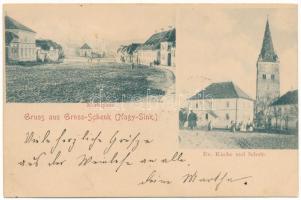 Marktplatz
Gruss aus Gross-Schenk (Nagy-Sink.)
Ev. Kirche und Schule.
Viele herzliche Grüße
aus der Weinlese an alle
deine Martha.